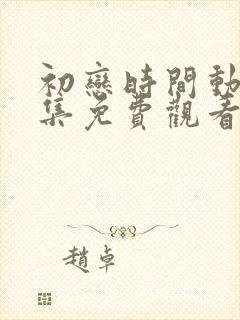 初戀時間動
集免費觀看
趙卓